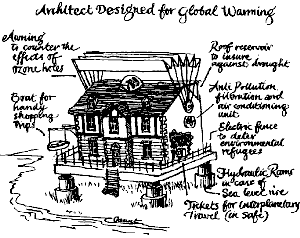 Architect Designed for Global Warming
Awning
to counter the
effects of
ozone holes
Roof reservoir
to insure
against drought
Boat for
handy
shopping
trips
Anti Pollution
filtration and
air conditioning
unit
Electric fence
to deter
environmental
refugees
Hydraulic Rams
in case of
Sea level rise
Tickets for Interplanetary
Travel (in Safe)